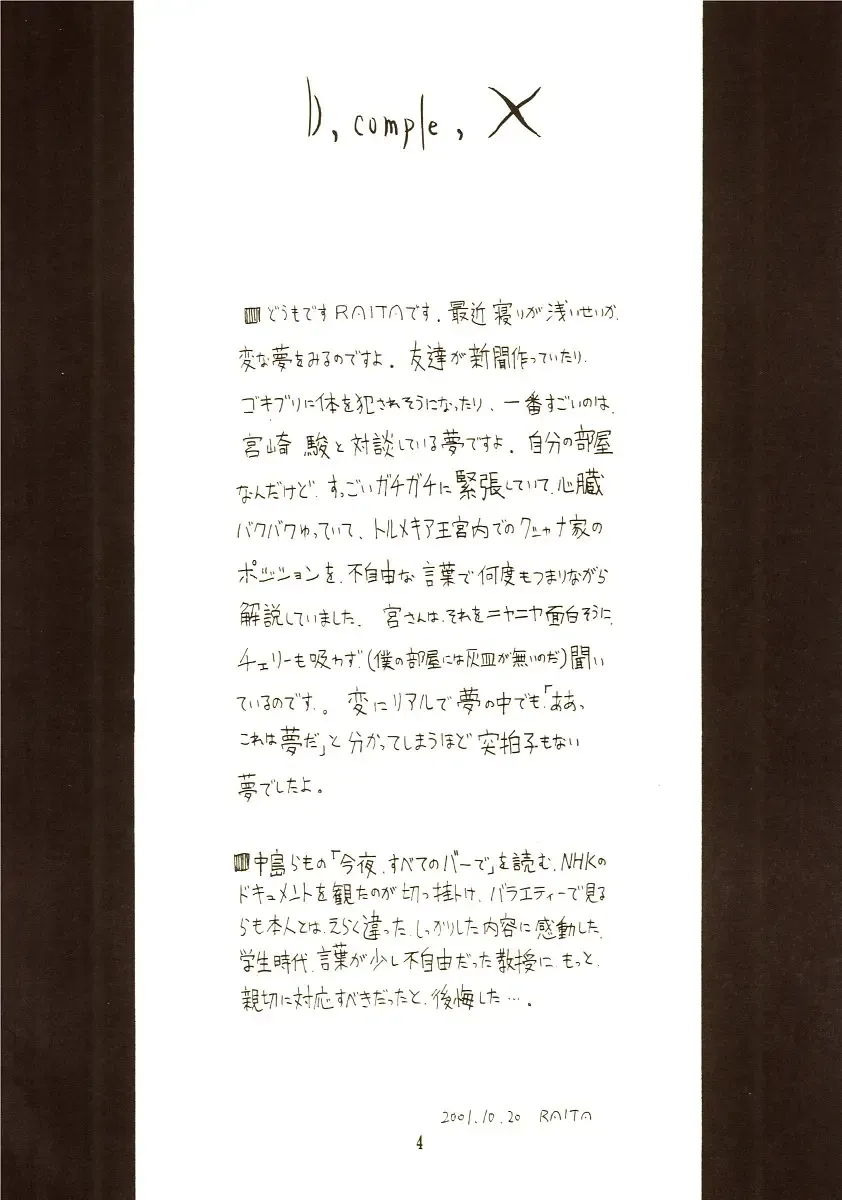 D, comple, X
どうもですRAITAです。最近寝りが浅いせいか、
変な夢をみるのですよ。友達が新聞作っていたり、
ゴキブリに体を犯されそうになったり、一番すごいのは、
宮崎 駿と対談している夢ですよ。自分の部屋
なんだけど、すっごいガチガチに緊張していて、心臓
バクバクゆっていて、トルメキア王宮内でのクシャナ家の
ポジションを、不自由な言葉で何度もつまりながら
解説していました。宮さんは、それをニヤニヤ面白そうに、
チェリーも吸わず、(僕の部屋には灰皿が無いのだ)聞い
ているのです。。変にリアルで夢の中でも、「ああっ
これは夢だ」と分かってしまうほど突拍子もない
夢でしたよ。
中島らもの「今夜、すべてのバーで」を読む、NHKの
ドキュメントを観たのが切っ掛け、バラエティーで見る
らも本人とは、えらく違った、しっかりした内容に感動した、
学生時代、言葉が少し不自由だった教授に、もっと、
親切に対応すべきだったと、後悔した…。
2001.10.20 RAITA
4